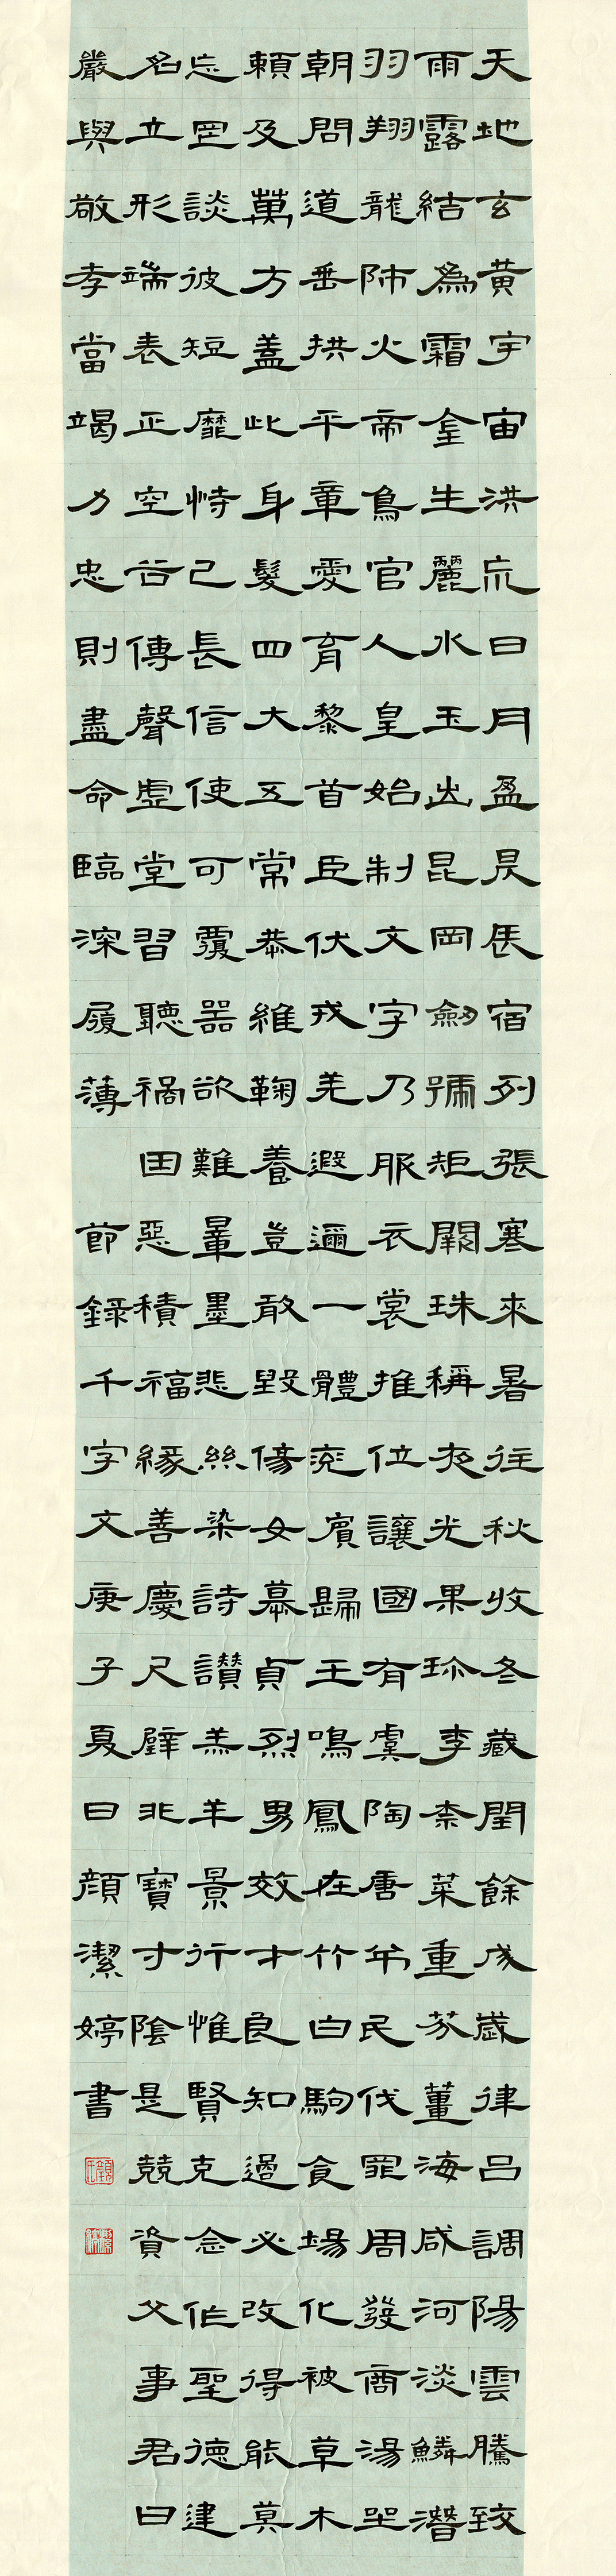 天地玄黄宇宙洪荒日月盈昃辰宿列張寒來暑往秋收冬藏閏餘成歲律呂調陽雲騰致
雨露結為霜金生麗水玉出昆岡劒號矩闕珠稱夜光果珍李柰菜重芥薑海咸河淡鱗潛
羽翔龍師火帝鳥官人皇始制文字乃服衣裳推位讓國有虞陶唐弔民伐罪周發商湯坐
朝問道垂拱平章愛育黎首臣伏戎羌遐邇一體率賓歸王鳴鳳在竹白駒食場化被草木
賴及萬方蓋此身髮四大五常恭維鞠養豈敢毀傷女慕貞烈男效才良知過必改得能莫
忘罔談彼短靡恃己長信使可覆器欲難量墨悲絲染詩讚羔羊景行惟賢克念作聖德建
名立形端表正空谷傳聲虛堂習聽禍因惡積福緣善慶尺璧非寶寸陰是競資父事君曰
嚴與敬孝當竭力忠則盡命臨深履薄 節錄千字文庚子夏日顏潔婷書